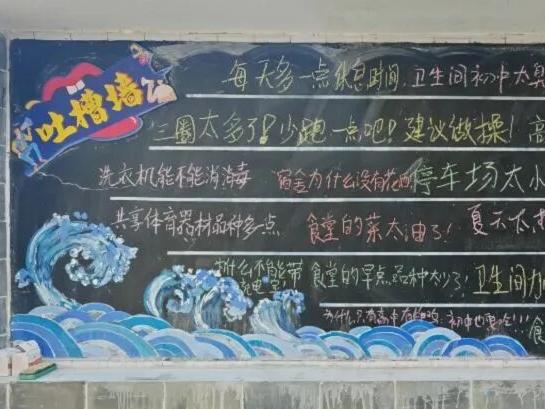 吐槽墙
每天多一点休息时间，卫生间初中太臭
三圈太多了！少跑一点吧！建议做操！高
洗衣机能不能消消毒 宿舍为什么没有花洒 停车场太小
共享体育器材品种多一点 食堂的菜太油了！ 夏天太
为什么不能带 食堂的早点品种太少了！ 卫生间加
充电宝
为什么只有高中有 初中也要吃！！！食